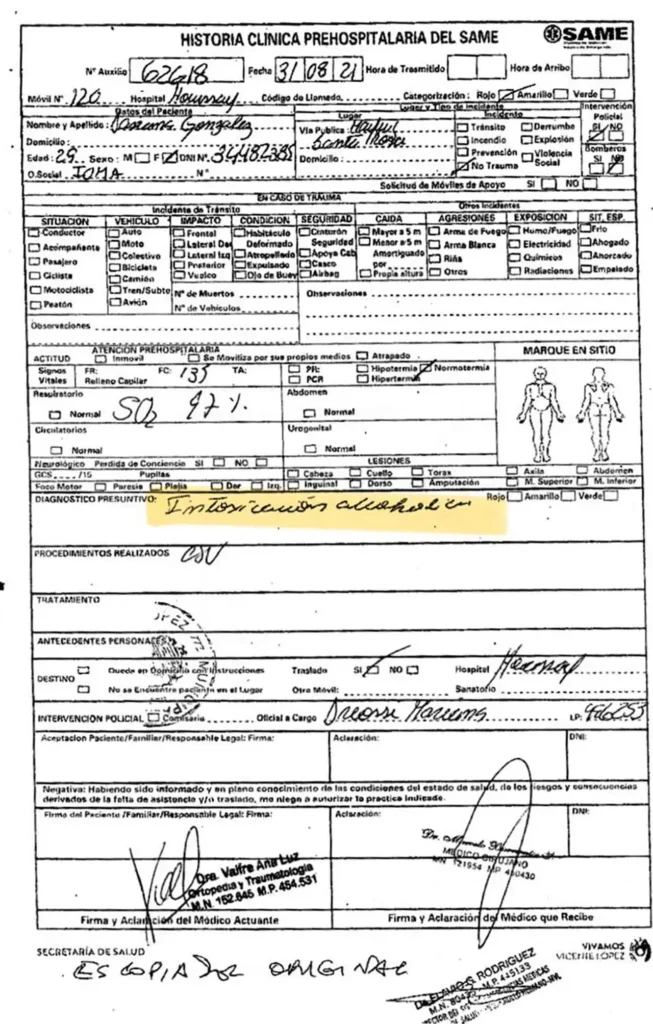 HISTORIA CLÍNICA PREHOSPITALARIA DEL SAME
SAME
Nº Auxilio 62618 Fecha 31 08 21 Hora de Trasmitido Hora de Arribo
Móvil Nº 120 Hospital Houssay Código de Llamado Categorización: Rojo Amarillo Verde
Datos del Paciente Lugar y Tipo de Incidente Intervención
Nombre y Apellido: Gonzalez Lugar Incidente Policial
Vía Publica: Maipú Tránsito Derrumbe SI NO
Santa Rosa Incendio Explosión Bomberos
Domicilio: Prevención Violencia SI NO
Edad: 29 Sexo: M F DNI Nº Domicilio: No Trauma Social
O.Social IOMA Nº
Solicitud de Móviles de Apoyo SI NO
EN CASO DE TRAUMA
Incidente de Tránsito Otros Incidentes
SITUACION VEHICULO IMPACTO CONDICION SEGURIDAD CAIDA AGRESIONES EXPOSICION SIT. ESP.
Conductor Auto Frontal Habitáculo Cinturón Mayor a 5 m Arma de Fuego Humo/Fuego Frío
Acompañante Moto Lateral Der Deformado Seguridad Menor a 5 m Arma Blanca Electricidad Ahogado
Pasajero Colectivo Lateral Izq Atropellado Apoya Cab Amortiguado Riña Químicos Ahorcado
Ciclista Bicicleta Posterior Expulsado Casco por Otros Radiaciones Empalado
Camión Vuelco Ojo de Buey Airbag Propia altura
Motociclista Tren/Subte Nº de Muertos Observaciones
Peatón Avión Nº de Vehículos
Observaciones
ATENCION PREHOSPITALARIA MARQUE EN SITIO
ACTITUD Inmovil Se Moviliza por sus propios medios Atrapado
Signos FR: FC: 135 TA: PR: Hipotermia Normotermia
Vitales Relleno Capilar PCR Hipertermia
Respiratorio Abdomen
Normal SO2 97 % Normal
Circulatorios Urogenital
Normal Normal
Neurológico Perdida de Conciencia SI NO LESIONES
GCS..../15 Pupilas Cabeza Cuello Torax Axila Abdomen
Foco Motor Paresia Plejia Der Izq. Inguinal Dorso Amputación M. Superior M. Inferior
DIAGNOSTICO PRESUNTIVO: Intoxicación alcoholica Rojo Amarillo Verde
PROCEDIMIENTOS REALIZADOS CSV
TRATAMIENTO
ANTECEDENTES PERSONALES
DESTINO Queda en Domicilio con Instrucciones Traslado SI NO Hospital Houssay
No se Encuentra paciente en el Lugar Otro Móvil: Sanatorio
INTERVENCION POLICIAL Comisaría Oficial a Cargo LP:
Aceptacion Paciente/Familiar/Responsable Legal: Firma: Aclaración: DNI:
Negativa: Habiendo sido informado y en pleno conocimiento de las condiciones del estado de salud, de los riesgos y consecuencias
derivados de la falta de asistencia y/o traslado, me niego a autorizar la practica indicada.
Firma del Paciente /Familiar/Responsable Legal: Firma: Aclaración: DNI:
Dra. Valfre Ana Luz
Ortopedia y Traumatología
M.N. 152.845 M.P. 454.531
MEDICO CIRUJANO
Firma y Aclaración del Médico Actuante Firma y Aclaración del Médico que Recibe
SECRETARÍA DE SALUD
VIVAMOS
VICENTE LÓPEZ
ES COPIA DEL ORIGINAL
RODRIGUEZ